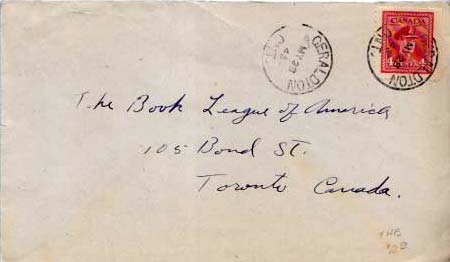 CANADA
GERALDTON
MY 28
43
ONT.
The Book League of America
105 Bond St.
Toronto Canada.